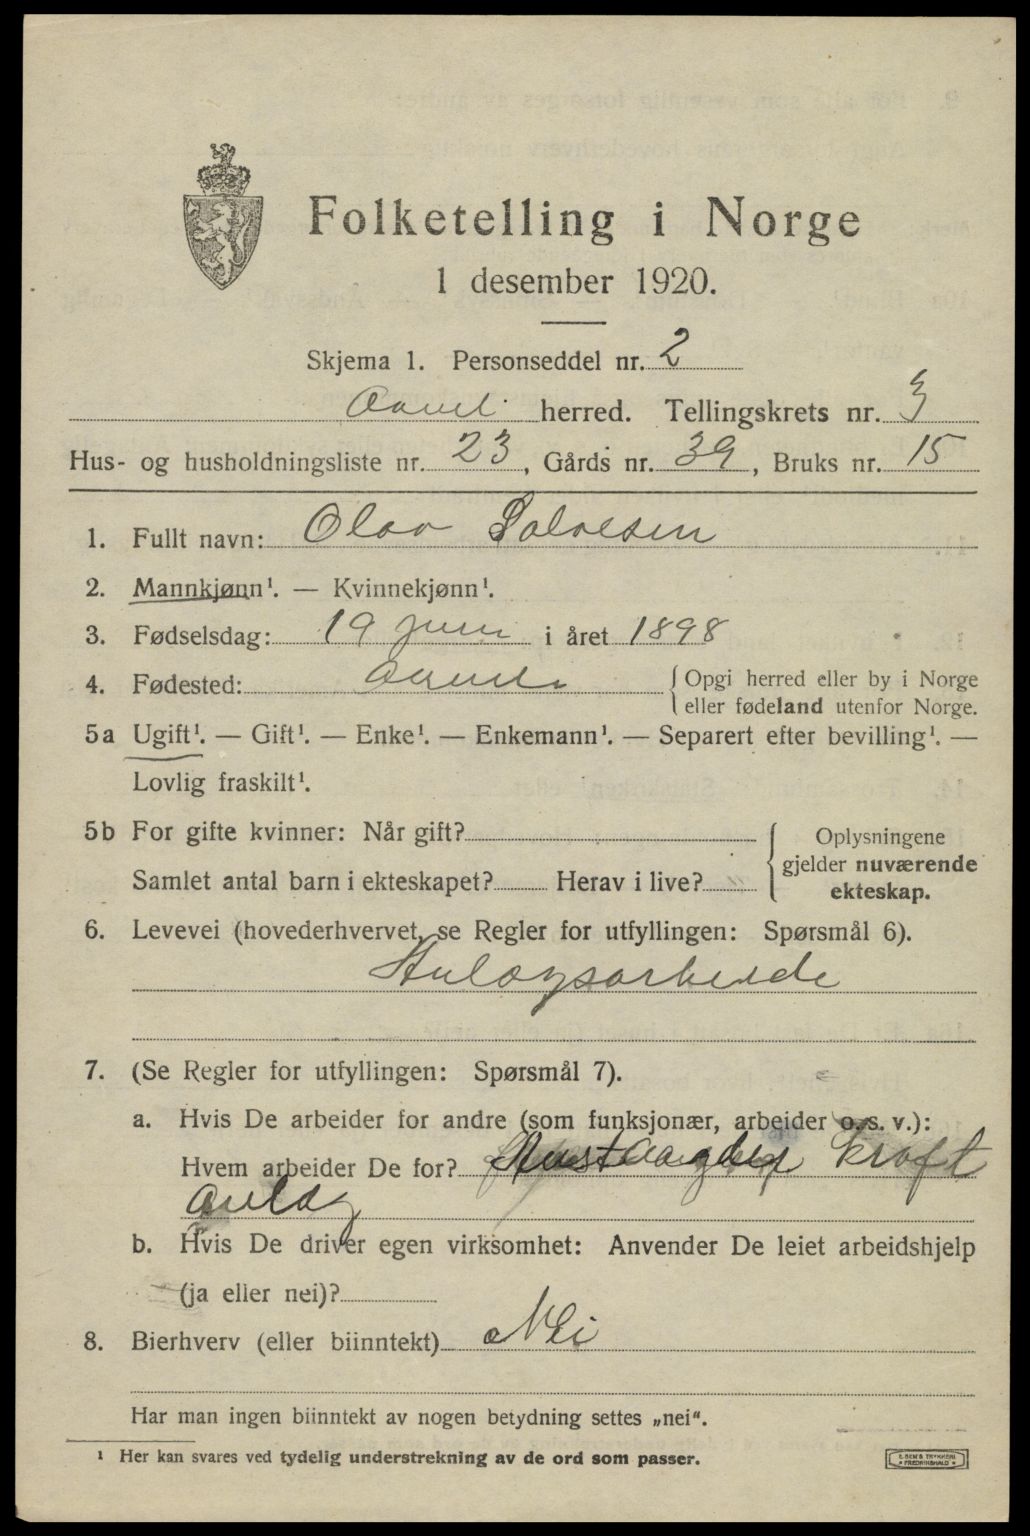 Folketelling i Norge
1 desember 1920.
Skjema 1. Personseddel nr. 2
herred. Tellingskrets nr. 3
Hus- og husholdningsliste nr. 23, Gårds nr. 39, Bruks nr. 15
1. Fullt navn: Olav Salvesen
2. Mannkjønn¹. — Kvinnekjønn¹.
3. Fødselsdag: 19 juni i året 1898
4. Fødested: { Opgi herred eller by i Norge
eller fødeland utenfor Norge.
5a Ugift¹. — Gift¹. — Enke¹. — Enkemann¹. — Separert efter bevilling¹. —
Lovlig fraskilt¹.
5b For gifte kvinner: Når gift?
Samlet antal barn i ekteskapet? Herav i live?
{ Oplysningene
gjelder nuværende
ekteskap.
6. Levevei (hovederhvervet, se Regler for utfyllingen: Spørsmål 6).
Anlægsarbeide
7. (Se Regler for utfyllingen: Spørsmål 7).
a. Hvis De arbeider for andre (som funksjonær, arbeider o. s. v.):
Hvem arbeider De for? kraft
anlæg
b. Hvis De driver egen virksomhet: Anvender De leiet arbeidshjelp
(ja eller nei)?
8. Bierhverv (eller biinntekt) Nei
Har man ingen biinntekt av nogen betydning settes „nei".
¹ Her kan svares ved tydelig understrekning av de ord som passer.